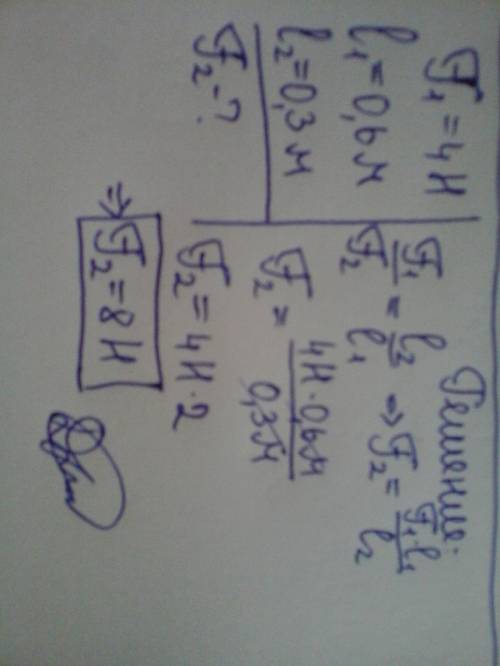 F₁ = 4 Н
l₁ = 0,6 м
l₂ = 0,3 м
F₂ - ?
Решение:
F₁/F₂ = l₂/l₁ => F₂ = F₁·l₁/l₂
F₂ = 4 Н · 0,6 м/0,3 м
F₂ = 4 Н · 2
=> F₂ = 8 Н